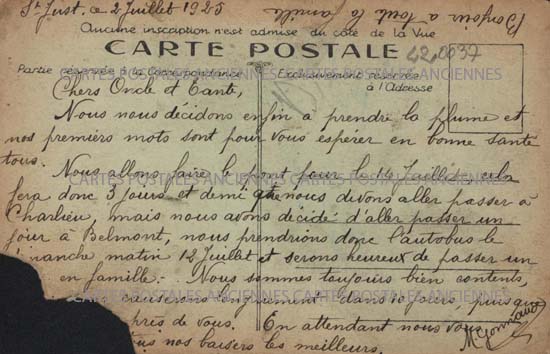 St Just, ce 2 Juillet 1925
Bonjour à toute la famille
Aucune inscription n'est admise du côté de la Vue
CARTE POSTALE
620037
Partie réservée à la Correspondance
Exclusivement réservée à l'Adresse
CARTES POSTALES ANCIENNES
Chers Oncle et Tante,
Nous nous décidons enfin à prendre la plume et
nos premiers mots sont pour vous espérer en bonne santé
tous.
Nous allons faire le pont pour le 14 Juillet cela
fera donc 3 jours et demi que nous devons aller passer à
Charlieu, mais nous avons décidé d'aller passer un
jour à Belmont, nous prendrions donc l'autobus le
manche matin 12 Juillet et serons heureux de passer un
en famille. - Nous sommes toujours bien contents,
causerons longuement dans 10 jours, puisque
près de vous. En attendant nous vous
nos baisers les meilleurs.